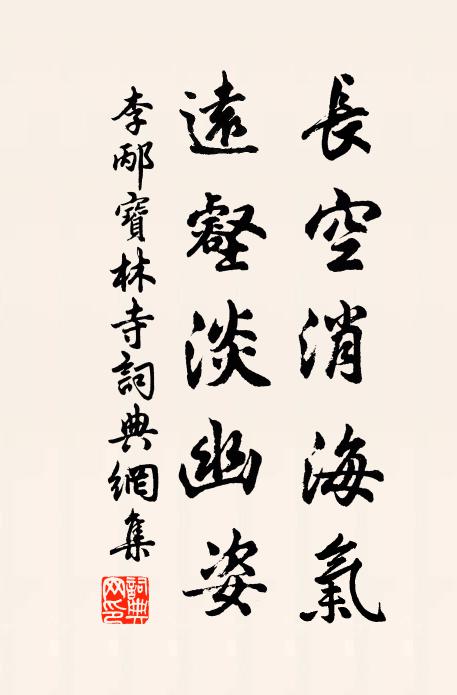 長空消海氣
遠壑淡幽姿
李邴寶林寺詞典網集
詞典網印